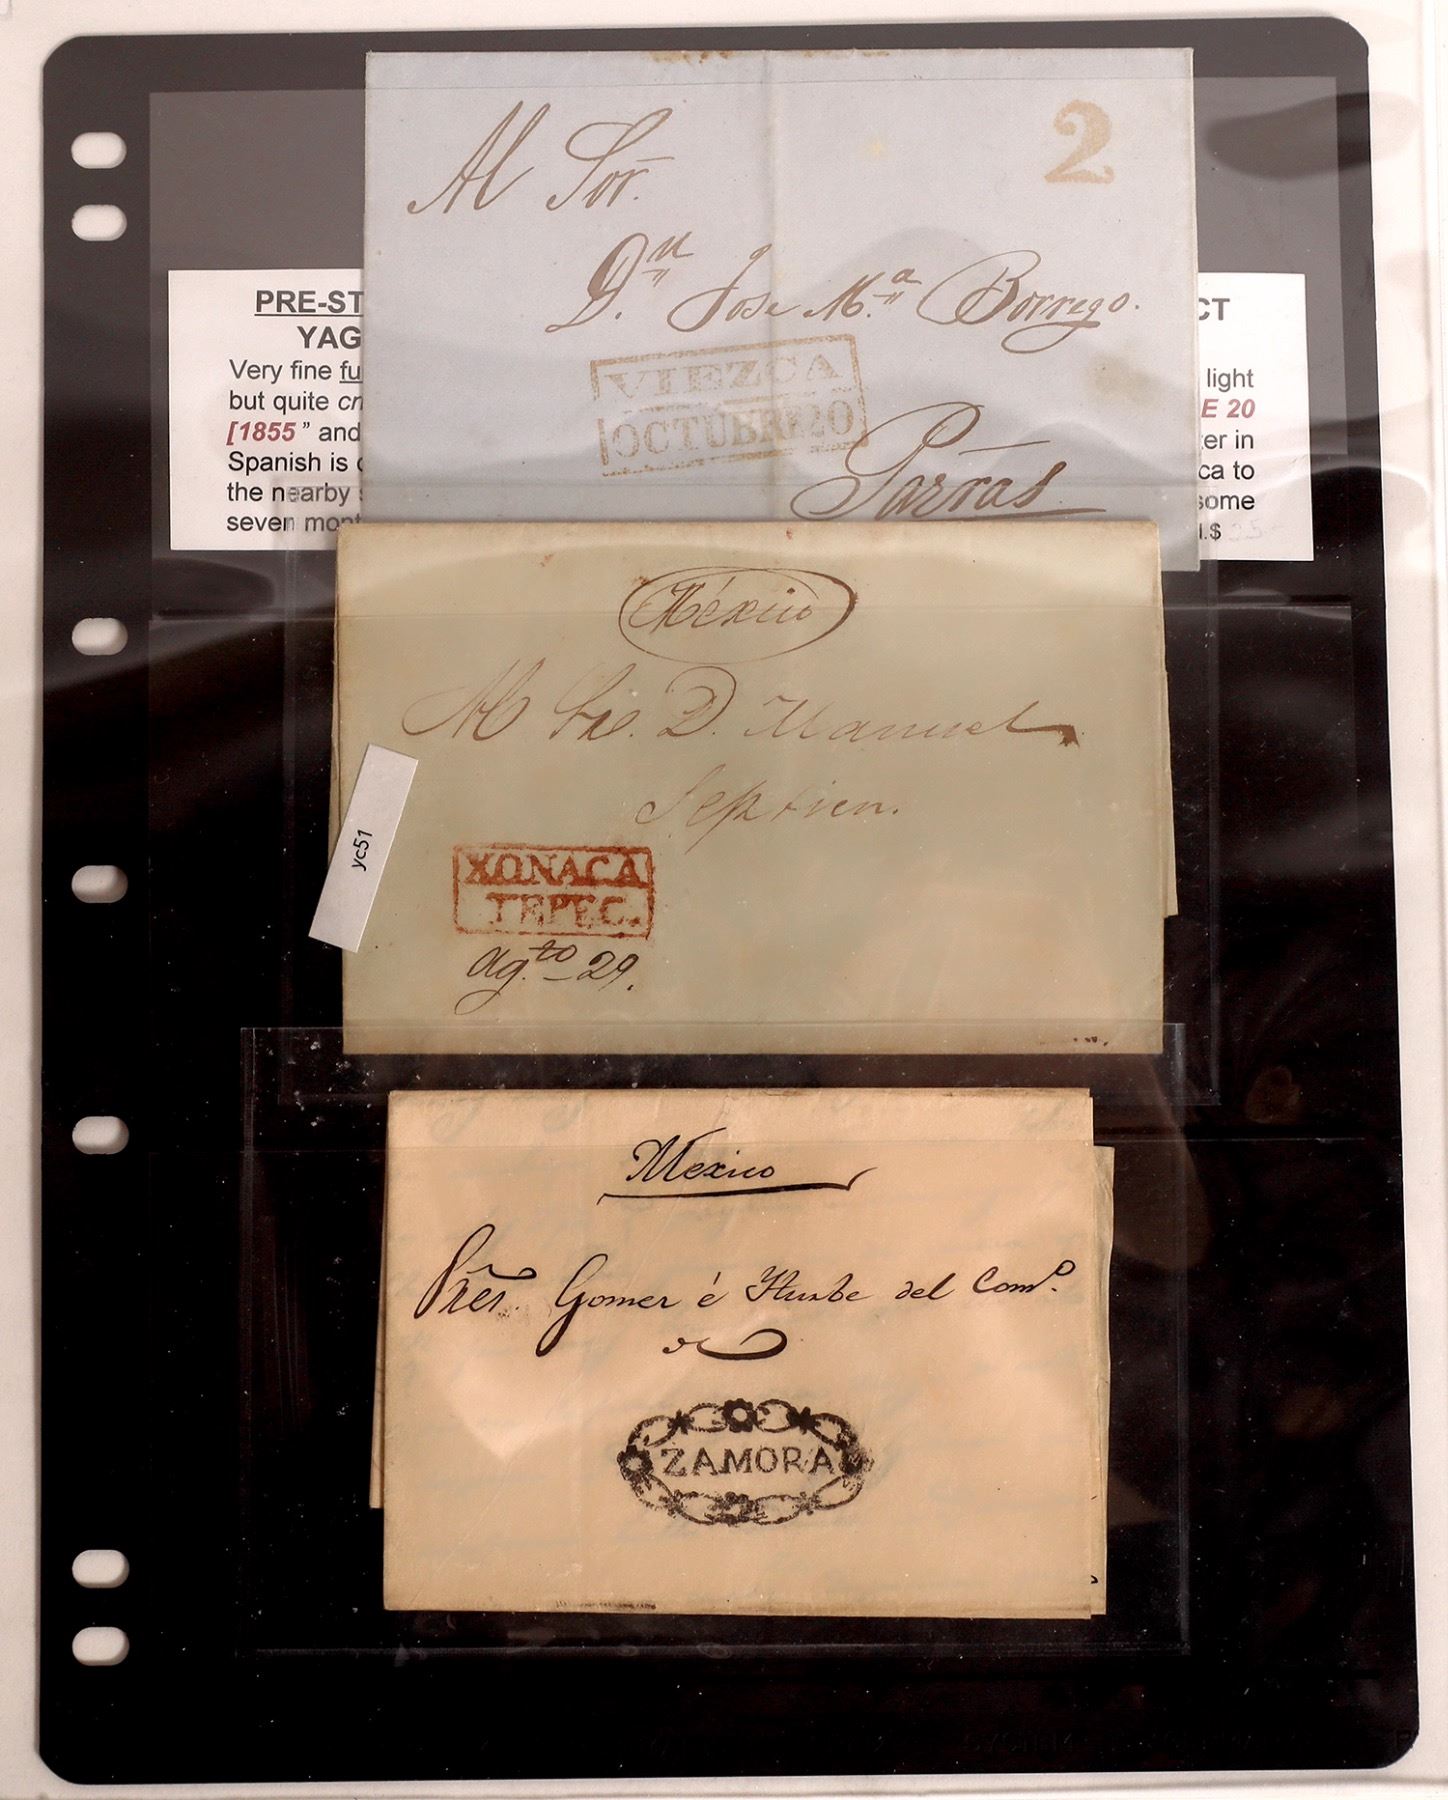 PRE-ST
CT
YAG
Very fine fu
light
but quite
E 20
[1855" and
er in
Spanish is
ca to
the nearby
some
seven mont
Al Sor.
2
Dn. Jose Ma. Borrego.
VIEZCA
OCTUBRE 20
Parras
México
Al Sr. D. Manuel
Septien.
yc51
XONACA
TEPEC.
Agto 29.
Mexico
Sres. Gomez é Yturbe del Como.
ZAMORA